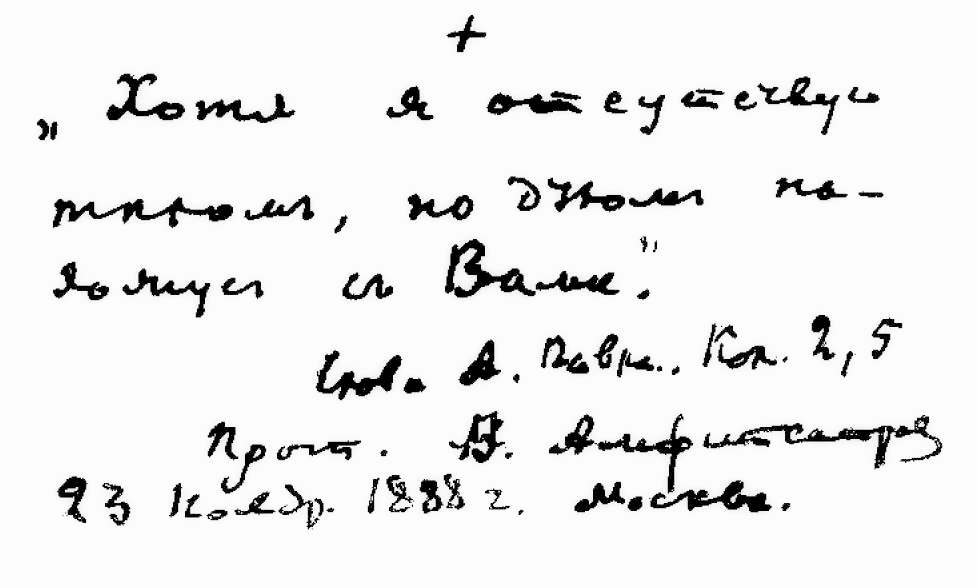 +
„Хотя я отсутствую
тѣломъ, но духомъ на-
хожусь съ Вами.“
Слова А. Павла., Кол. 2, 5
Прот. В. Амфитеатров
23 Ноябр. 1888 г. Москва.